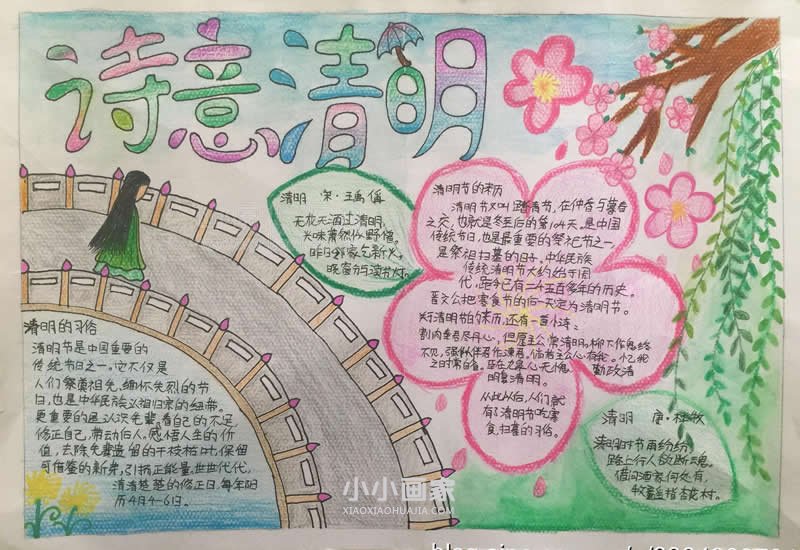 诗意清明
清明 宋·王禹偁
无花无酒过清明,
兴味萧然似野僧。
昨日邻家乞新火,
晓窗分与读书灯。
清明节的来历
清明节又叫踏青节,在仲春与暮春
之交,也就是冬至后的第104天。是中国
传统节日,也是最重要的祭祀节之一,
是祭祖扫墓的日子。中华民族
传统清明节大约始于周
代,距今已有二千五百多年的历史。
晋文公把寒食节的后一天定为清明节。
对清明节的来历,还有一首小诗:
割肉奉君尽丹心,但愿主公常清明。柳下作鬼终
不见,强似伴君作谏臣。倘若主公心有我,忆我
之时常自省。臣在九泉心无愧, 勤政清
明复清明。
从此以后,人们就
有了清明节吃寒
食,扫墓的习俗。
清明的习俗
清明节是中国重要的
传统节日之一。它不仅是
人们祭奠祖先,缅怀先烈的节
日,也是中华民族认祖归宗的纽带。
更重要的是认识先辈,看自己的不足
修正自己,带动后人。感悟人生的价
值,去除先辈遗留的干枝枯叶,保留
可借鉴的新芽,引持正能量,世世代代,
清清楚楚的修正日,每年阳
历4月4-6日。
清明 唐·杜牧
清明时节雨纷纷,
路上行人欲断魂。
借问酒家何处有,
牧童遥指杏花村。
小小画家
XIAOXIAOHUAJIA.COM